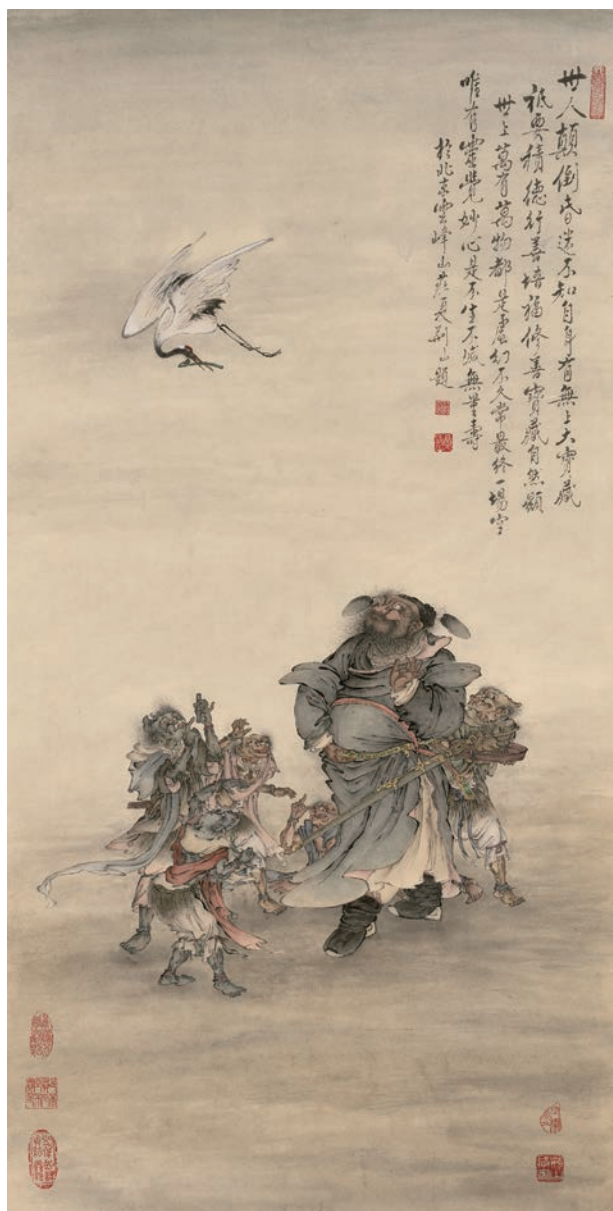 世人顛倒昏迷不知自身有無上大寶藏
祗要積德行善培福修善寶藏自然顯
世上萬有萬物都是虛幻不久常最終一場空
唯有靈覺妙心是不生不滅無量壽
於北京雲峰山莊夏荆山題